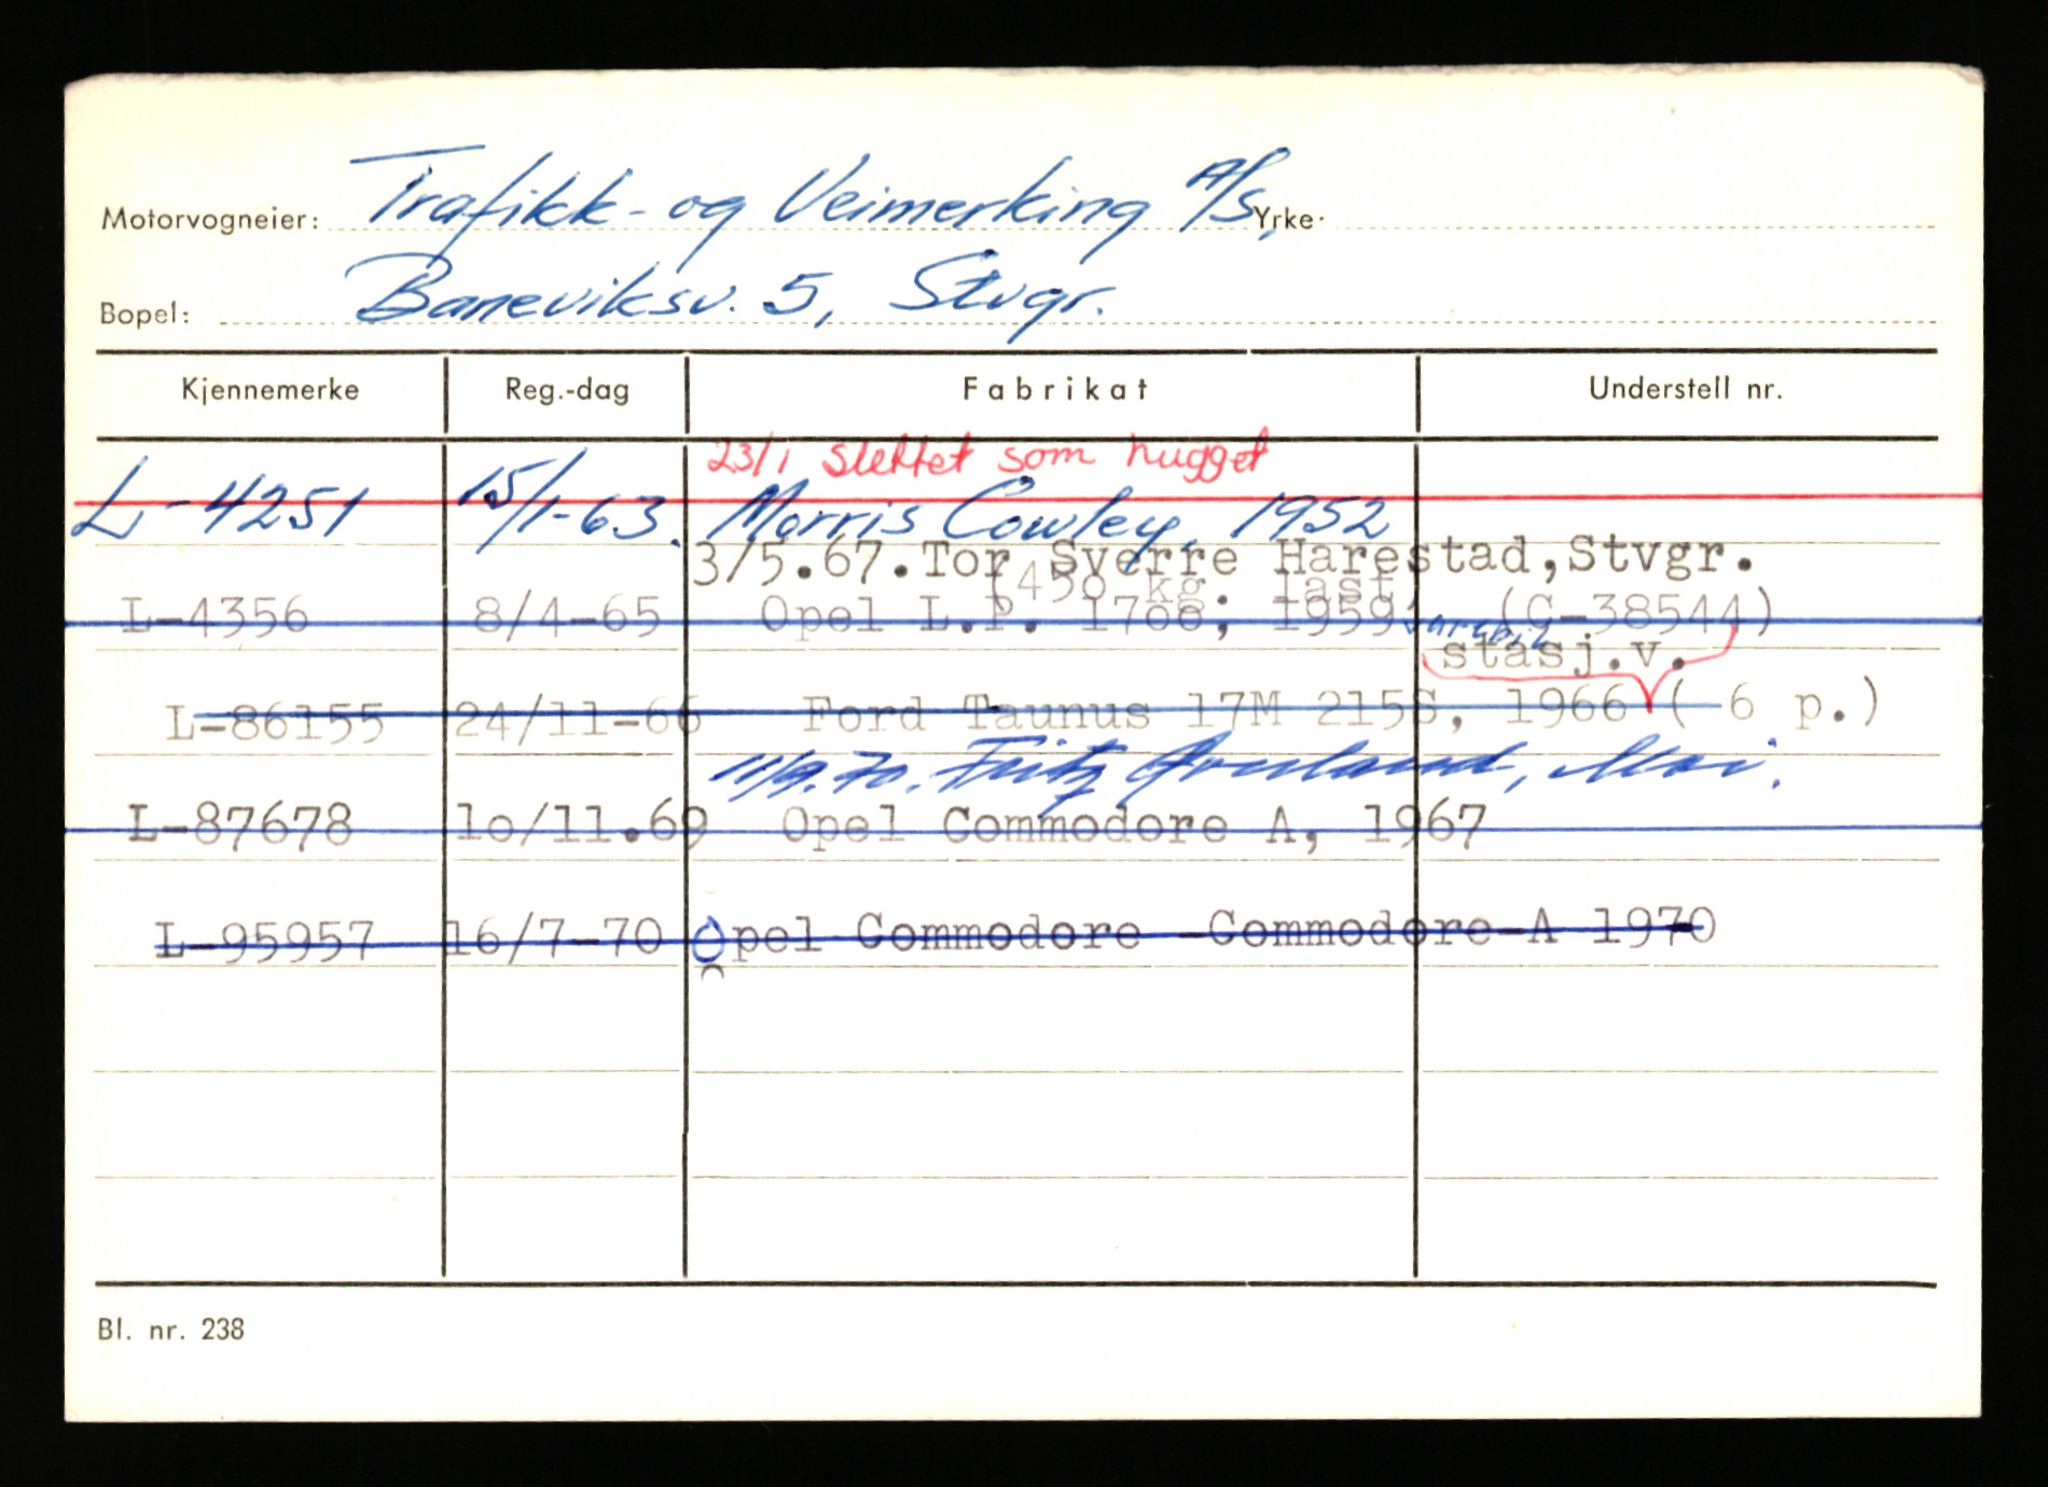 Motorvogneier: Trafikk- og Veimerking A/S, Yrke.
Bopel: Baneviksv. 5, Stvgr.
Kjennemerke Reg.-dag Fabrikat Understell nr.
23/1 slettet som hugget
L-4251 15/1-63. Morris Cowley, 1952
3/5.67. Tor Sverre Harestad, Stvgr.
(450 kg. last,
L-4356 8/4-65 Opel L.P. 1768, 1959 varebil (C-38544)
stasj.v.
L-86155 24/11-66 Ford Taunus 17M 215S, 1966 ( 6 p.)
11/9.70. Fritz
L-87678 10/11.69 Opel Commodore A, 1967
L-95957 16/7-70 Opel Commodore -Commodore-A 1970
Bl. nr. 238